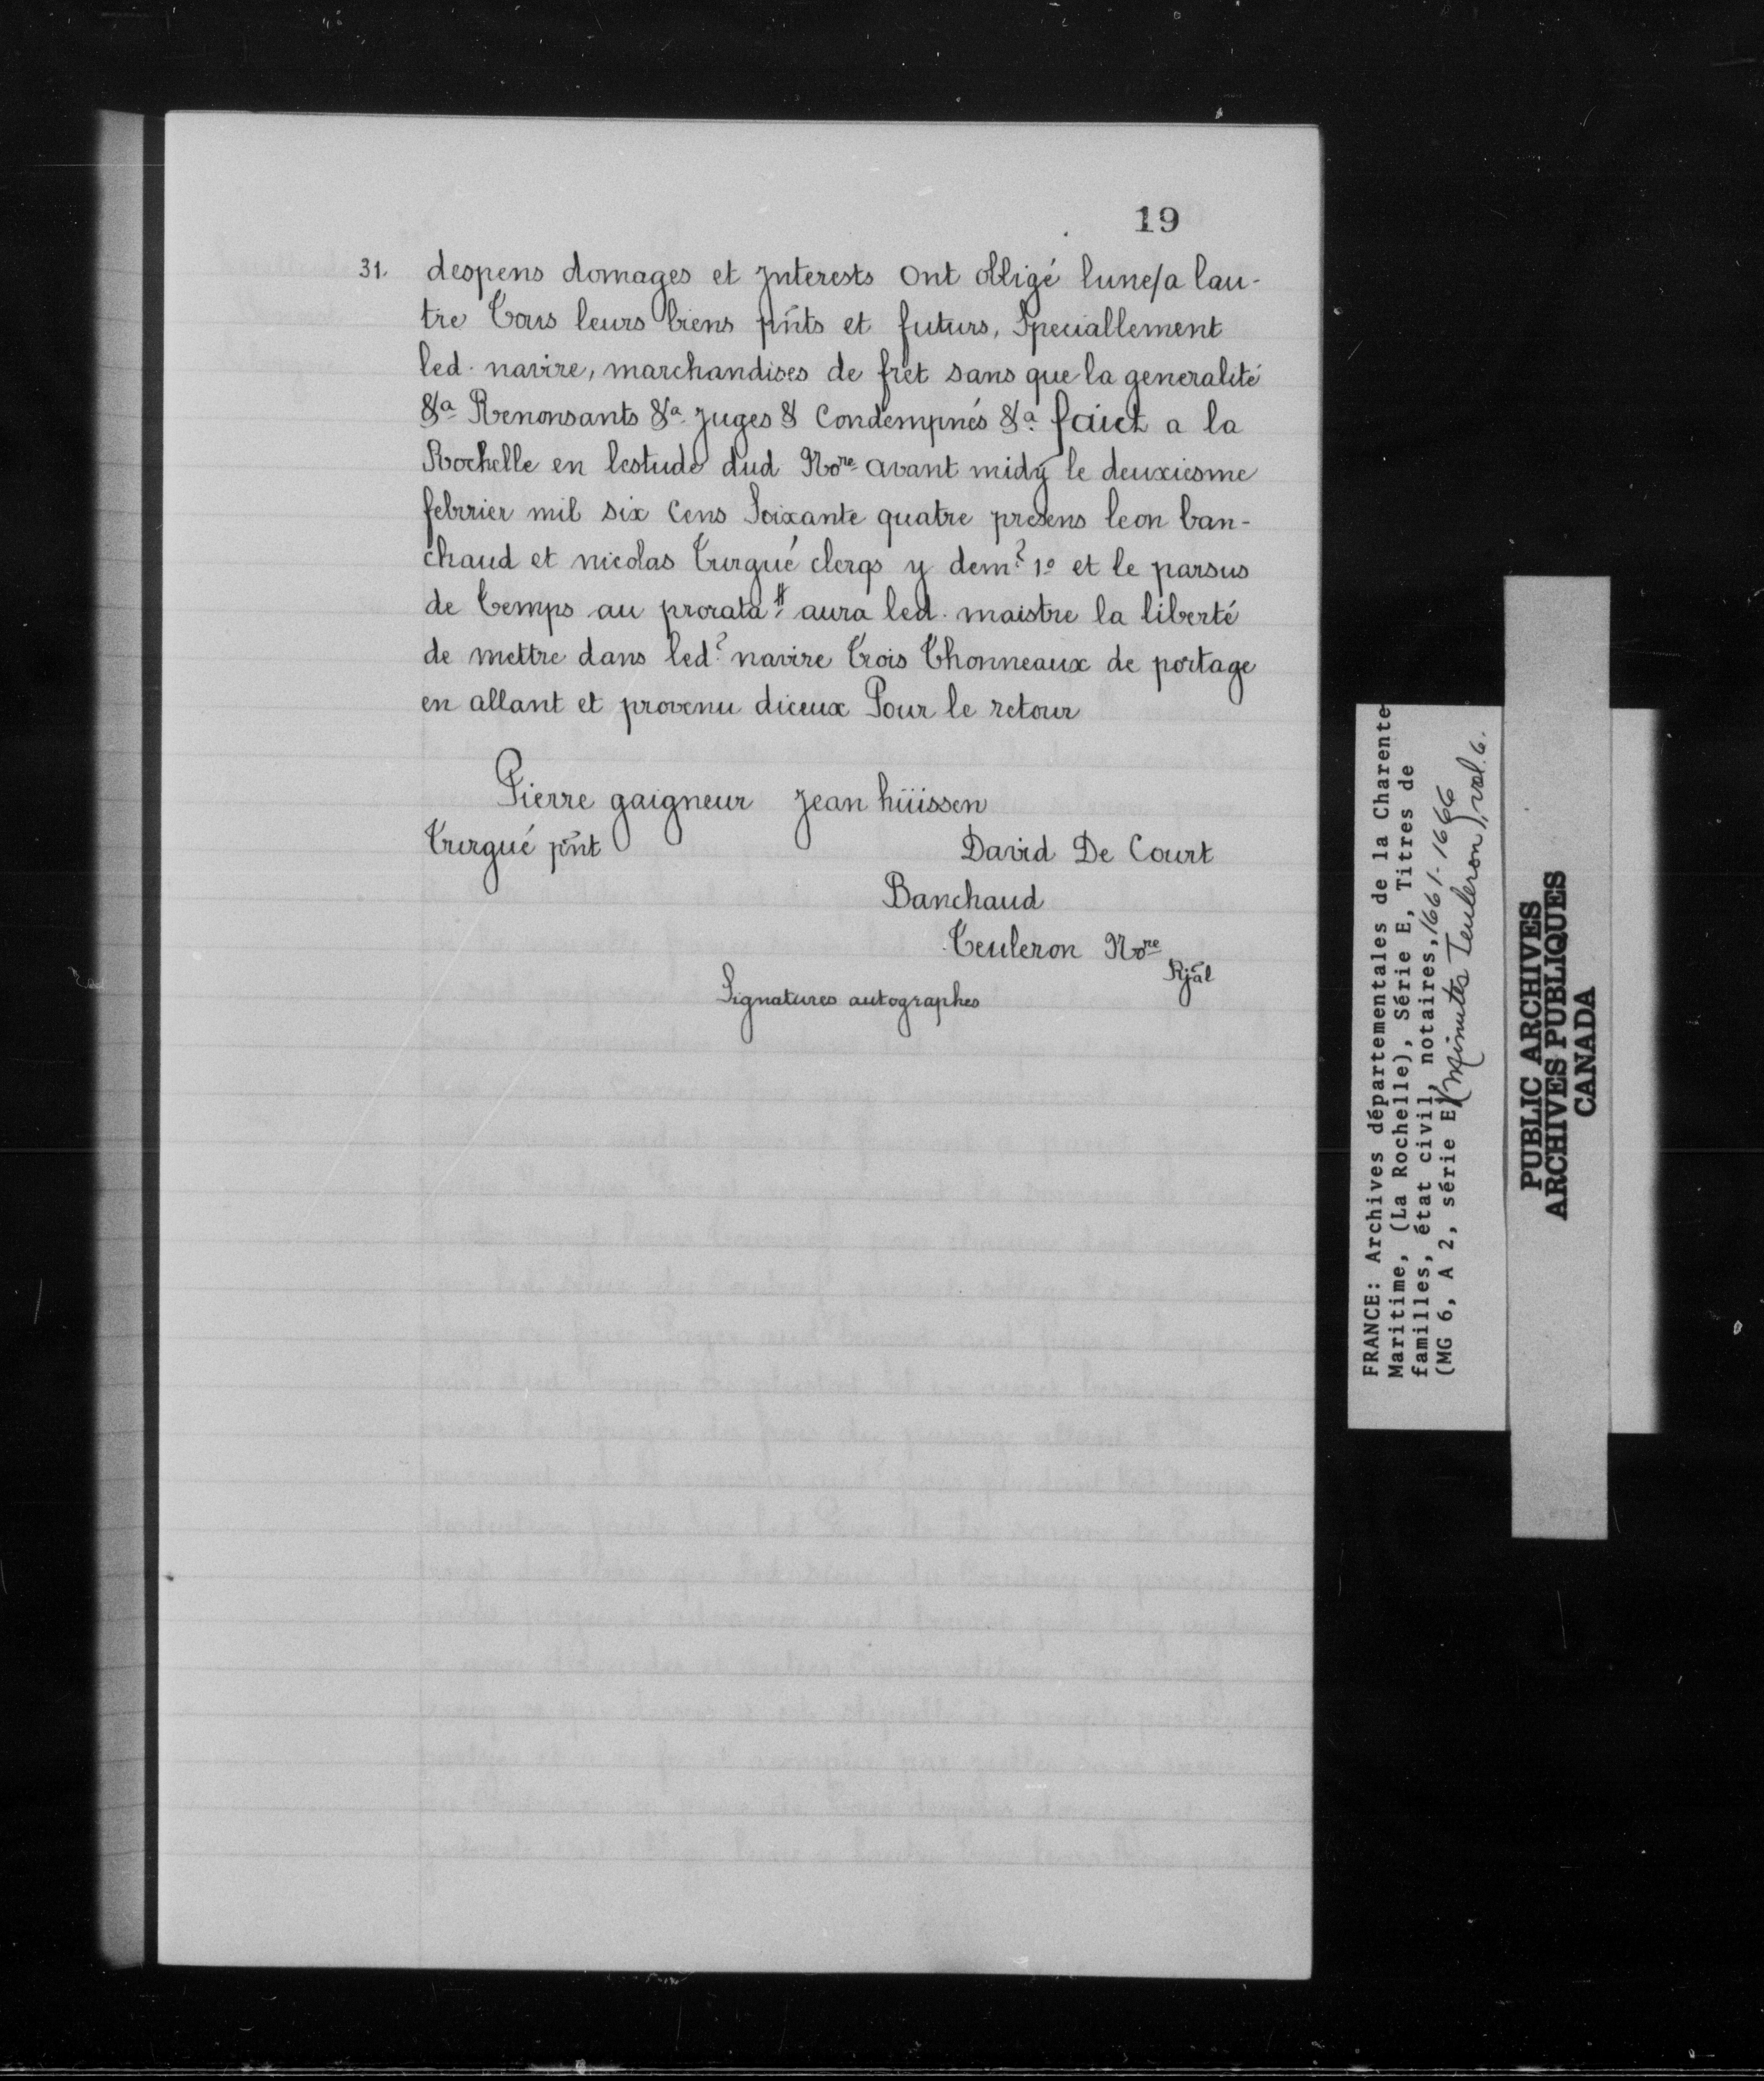 19
31. despens domages et jnterests ont obligé lune/a lau-
tre Tous leurs biens pnts et futurs, Speciallement
led. navire, marchandises de fret sans que la generalité
&a Renonsants &a juges & Condempnés &a faict a la
Rochelle en lestude dud Nore avant midy le deuxiesme
febvrier mil six Cens Soixante quatre presens leon ban-
chaud et nicolas Turgué clercs y dem? 1o et le parsus
de temps au prorata # aura led. maistre la liberté
de mettre dans led? navire Trois Thonneaux de portage
en allant et provenu diceux Pour le retour
Pierre gaigneur jean hüissen
Turgué pnt David De Court
Banchaud
Teuleron Nore
Rjal
Signatures autographes
FRANCE: Archives départementales de la Charente-
Maritime, (La Rochelle), Série E, Titres de
familles, état civil, notaires, 1661-1666
(MG 6, A 2, série E) (Minutes Teuleron), vol. 6.
PUBLIC ARCHIVES
ARCHIVES PUBLIQUES
CANADA